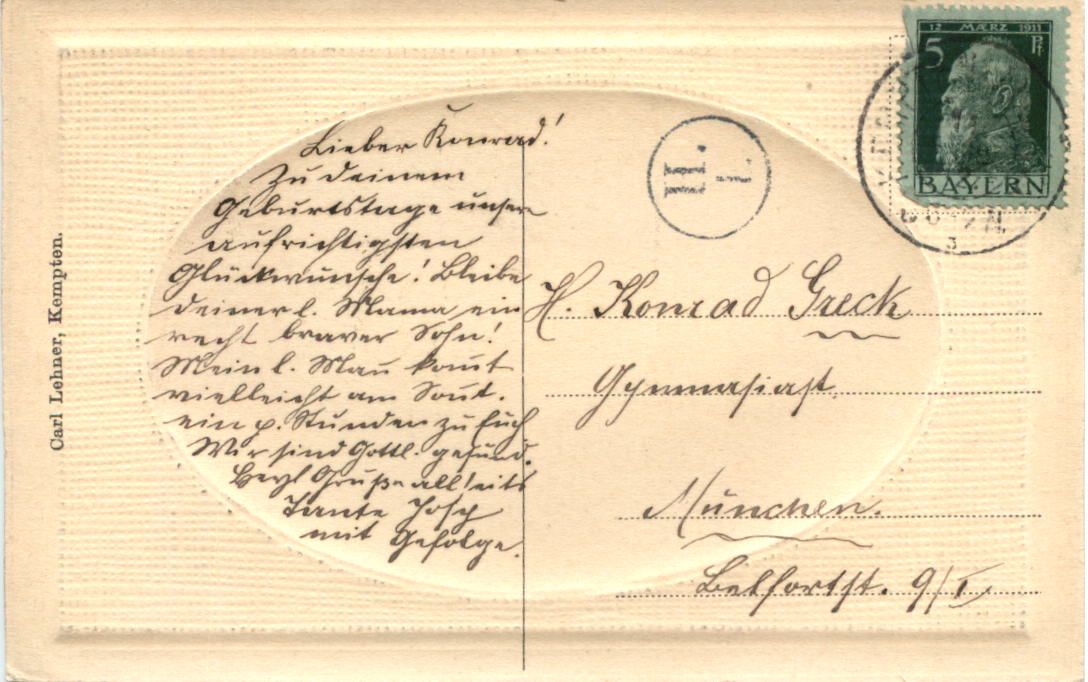 Carl Lehner, Kempten.
Lieber Konrad!
Zu deinem
Geburtstage unsere
aufrichtigsten
Glückwünsche! Bleibe
deiner l. Mama ein
recht braver Sohn!
Mein l. Man komt
vielleicht am Sont.
ein p. Stunden zu Euch
Wir sind Gottl. gesund.
Herzl Grüße allseits
Tante Josef
mit Gefolge.
12 MÆRZ 1911
5 Pf.
BAYERN
II.
H. Konrad Greck
Gymnasiast
München.
Belfortst. 9/I